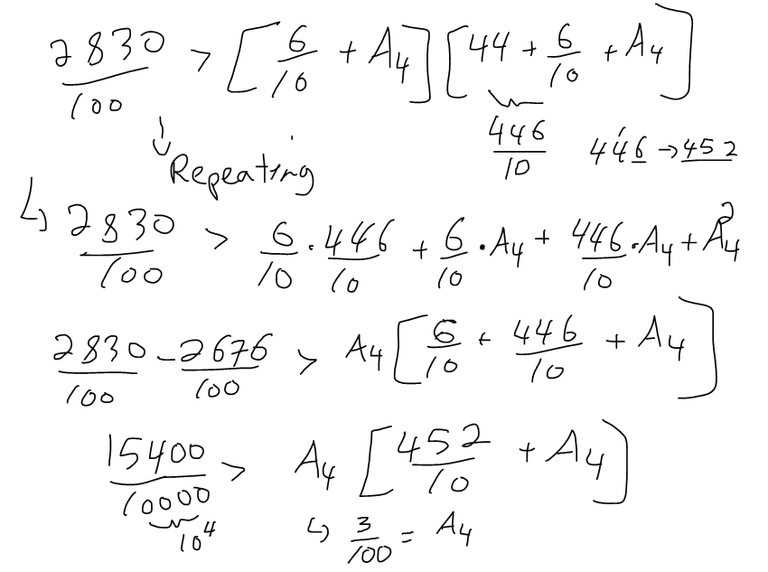 2830/100 > [6/10 + A₄][44 + 6/10 + A₄]
446/10 446 → 452
Repeating
↳ 2830/100 > 6/10 · 446/10 + 6/10 · A₄ + 446/10 · A₄ + A₄²
2830/100 - 2676/100 > A₄[6/10 + 446/10 + A₄]
15400/10000 > A₄[452/10 + A₄]
10⁴ ↳ 3/100 = A₄